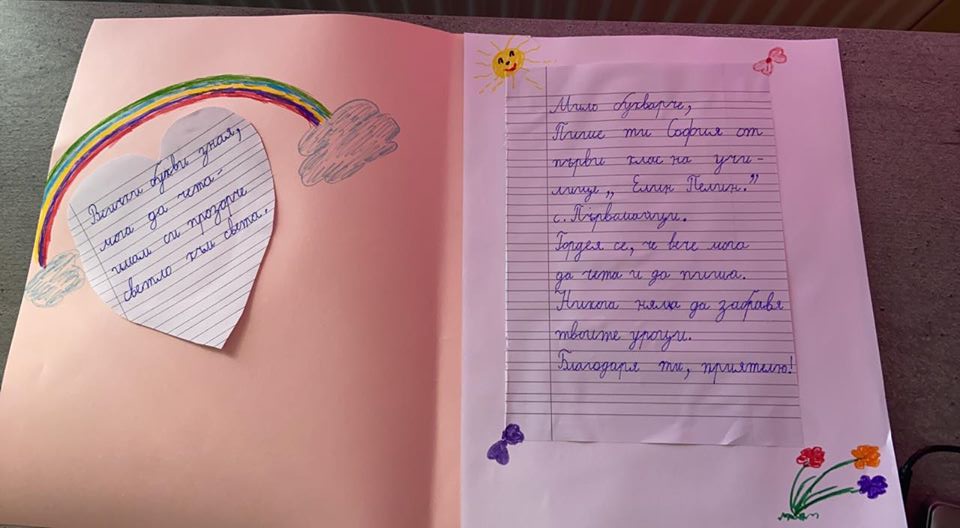 Всички букви зная,
мога да чета –
имам си прозорче
светло към света.
Мило букварче,
Пише ти София от
първи клас на учи –
лище „ Елин Пелин.”
с. Първомайци.
Гордея се, че вече мога
да чета и да пиша.
Никога няма да забравя
твоите уроци.
Благодаря ти, приятелю!